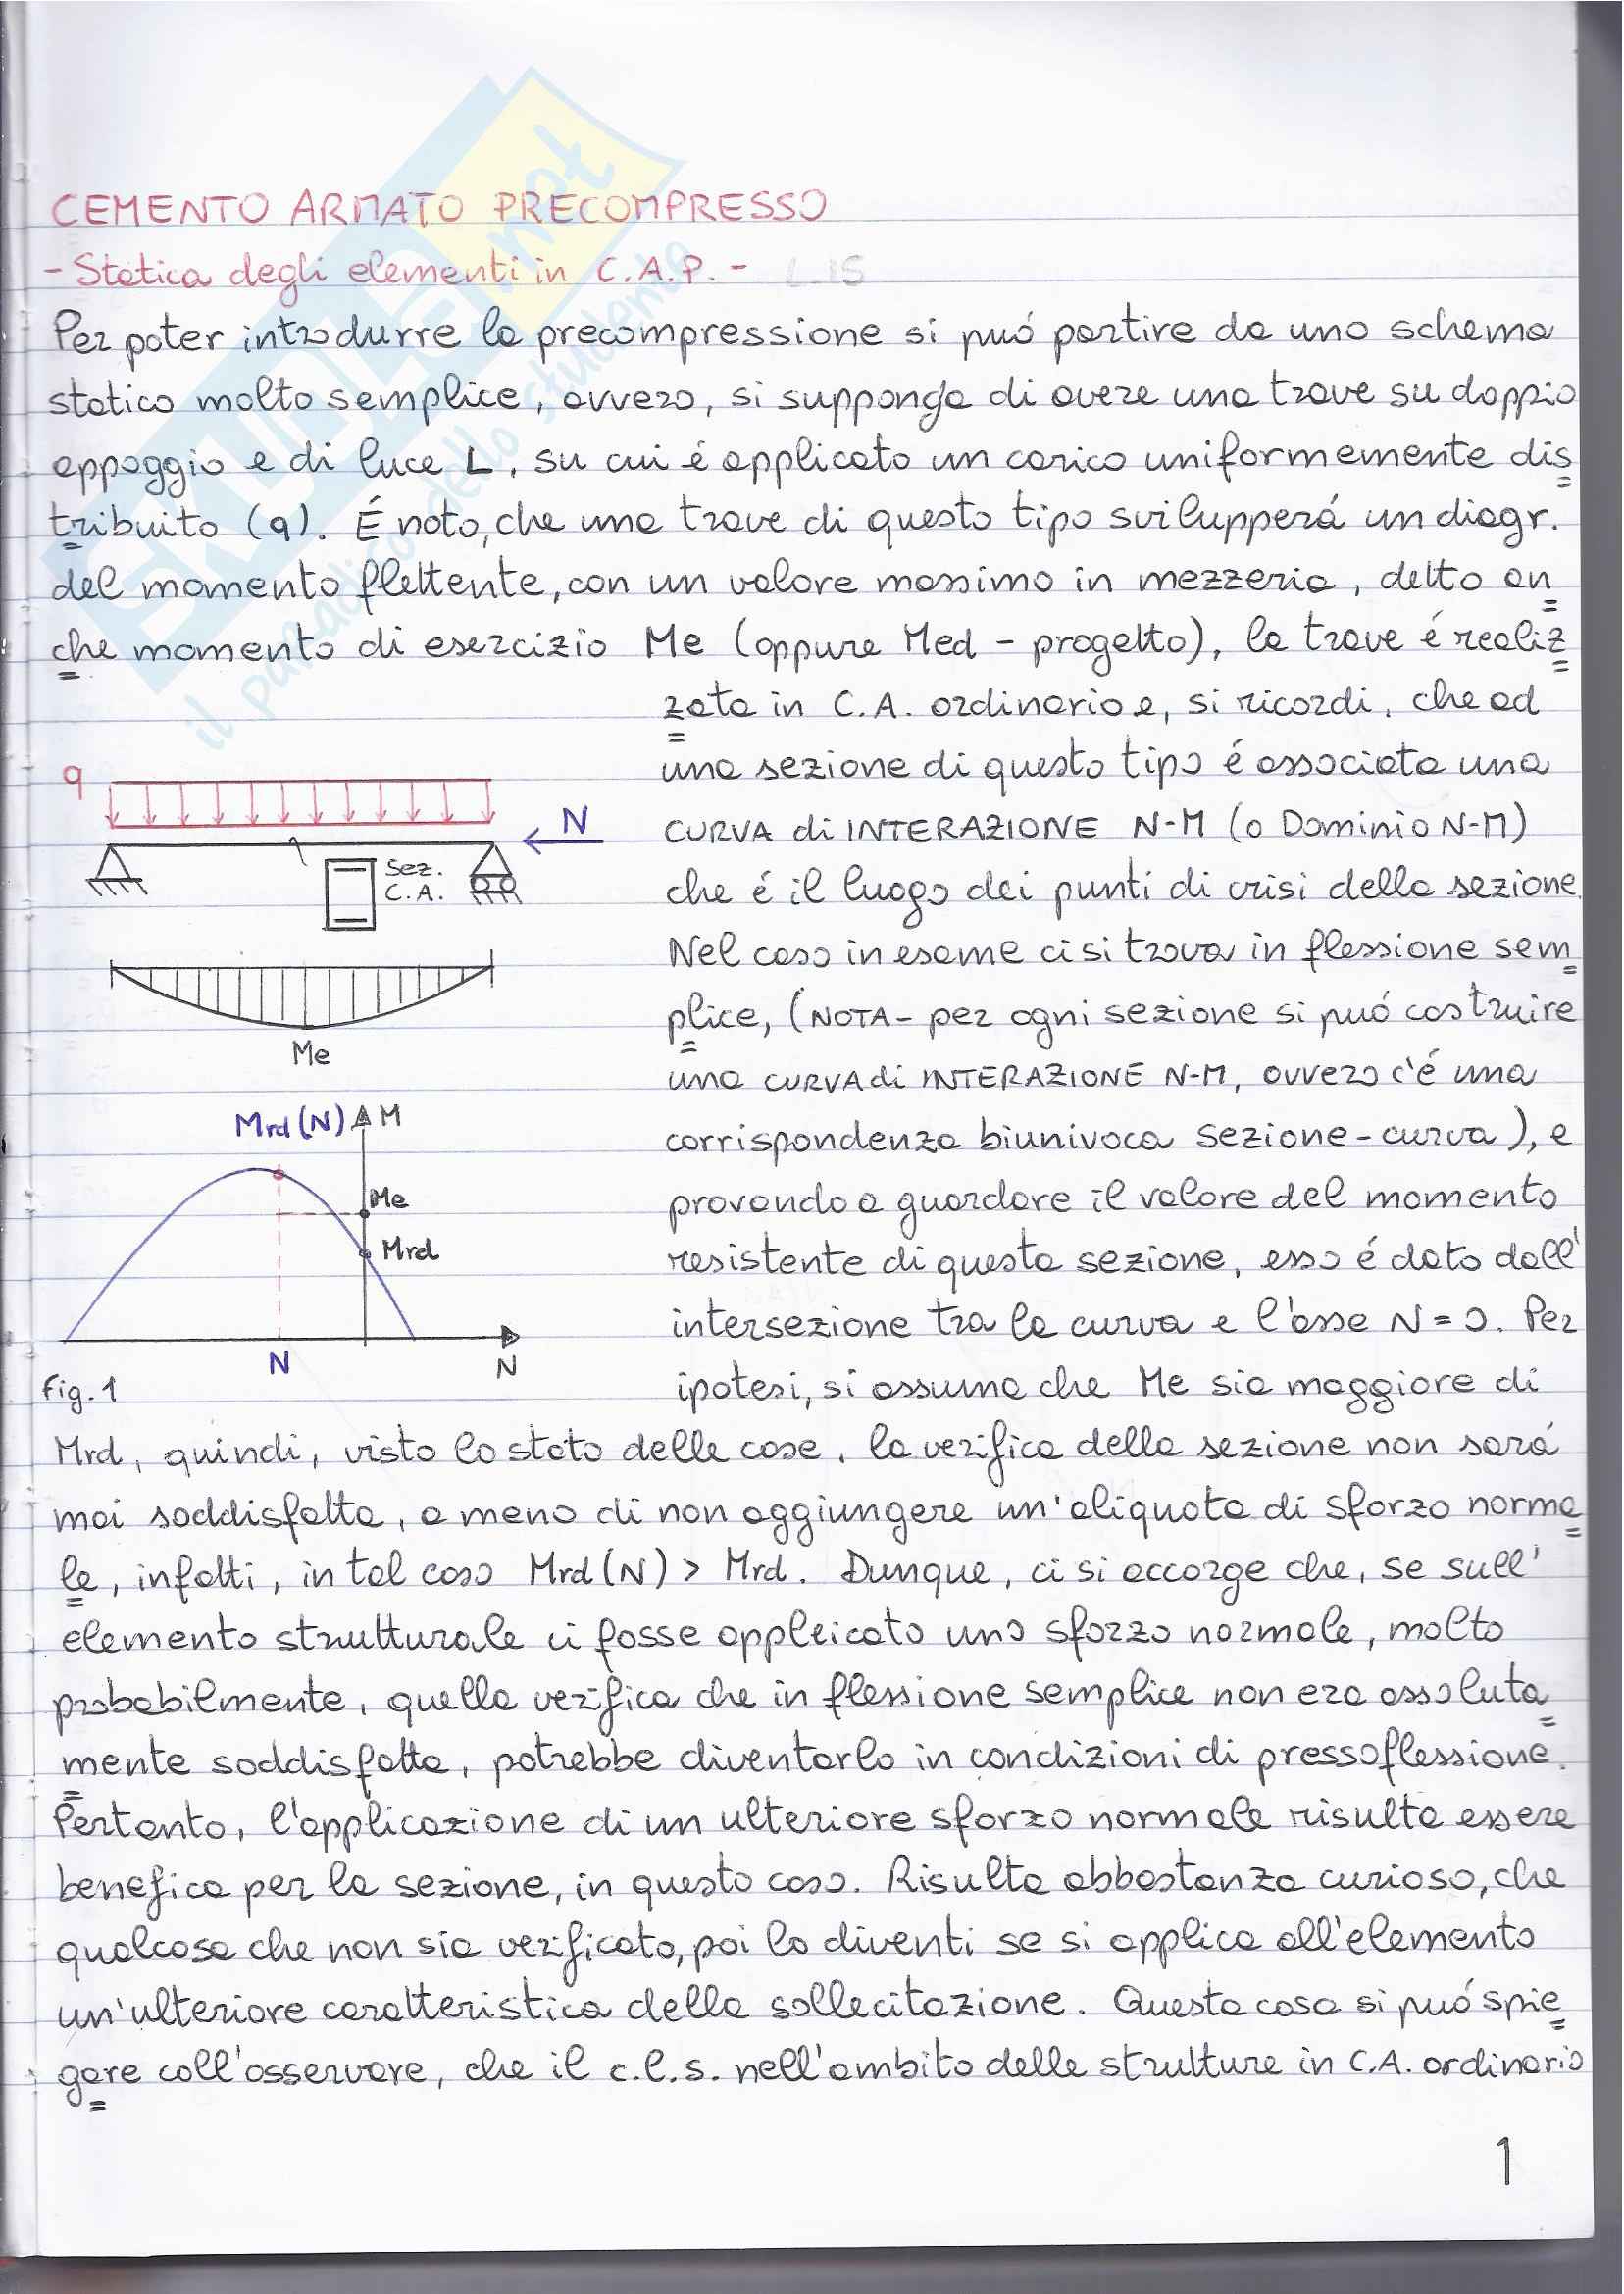 CEMENTO ARMATO PRECOMPRESSO
- Statica degli elementi in C.A.P. - L.15
Per poter introdurre la precompressione si puó partire da uno schema
statico molto semplice, ovvero, si supponga di avere una trave su doppio
appoggio e di luce L, su cui é applicato un carico uniformemente dis
tribuito (q). É noto, che una trave di questo tipo svilupperá un diagr.
del momento flettente, con un valore massimo in mezzeria, detto an
che momento di esercizio Me (oppure Med - progetto), la trave é realiz
zata in C.A. ordinario e, si ricordi, che ad
una sezione di questo tipo é associata una
CURVA di INTERAZIONE N-M (o Dominio N-M)
che é il luogo dei punti di crisi della sezione.
Nel caso in esame ci si trova in flessione sem
plice, (NOTA - per ogni sezione si puó costruire
una CURVA di INTERAZIONE N-M, ovvero c'é una
corrispondenza biunivoca sezione-curva), e
provando a guardare il valore del momento
resistente di questa sezione, esso é dato dall'
intersezione tra la curva e l'asse N = 0. Per
ipotesi, si assuma che Me sia maggiore di
q
N
Sez.
C.A.
Me
Mrd (N)
M
Me
Mrd
N
N
Fig. 1
Mrd, quindi, visto lo stato delle cose, la verifica della sezione non sará
mai soddisfatta, a meno di non aggiungere un'aliquota di sforzo norma
le, infatti, in tal caso Mrd (N) > Mrd. Dunque, ci si accorge che, se sull'
elemento strutturale ci fosse appleicato uno sforzo normale, molto
probabilmente, quella verifica che in flessione semplice non era assoluta
mente soddisfatta, potrebbe diventarlo in condizioni di pressoflessione.
Pertanto, l'applicazione di un ulteriore sforzo normale risulta essere
benefica per la sezione, in questo caso. Risulta abbastanza curioso, che
qualcosa che non sia verificato, poi lo diventi se si applica all'elemento
un'ulteriore caratteristica della sollecitazione. Questa cosa si puó spie
gare coll'osservare, che il c.l.s. nell'ambito delle strutture in C.A. ordinario
1
il paradiso dello studente